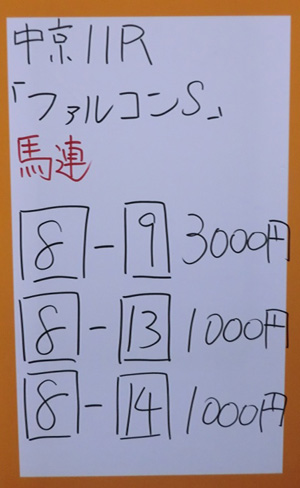 中京11R
「ファルコンS」
馬連
8-9 3000円
8-13 1000円
8-14 1000円